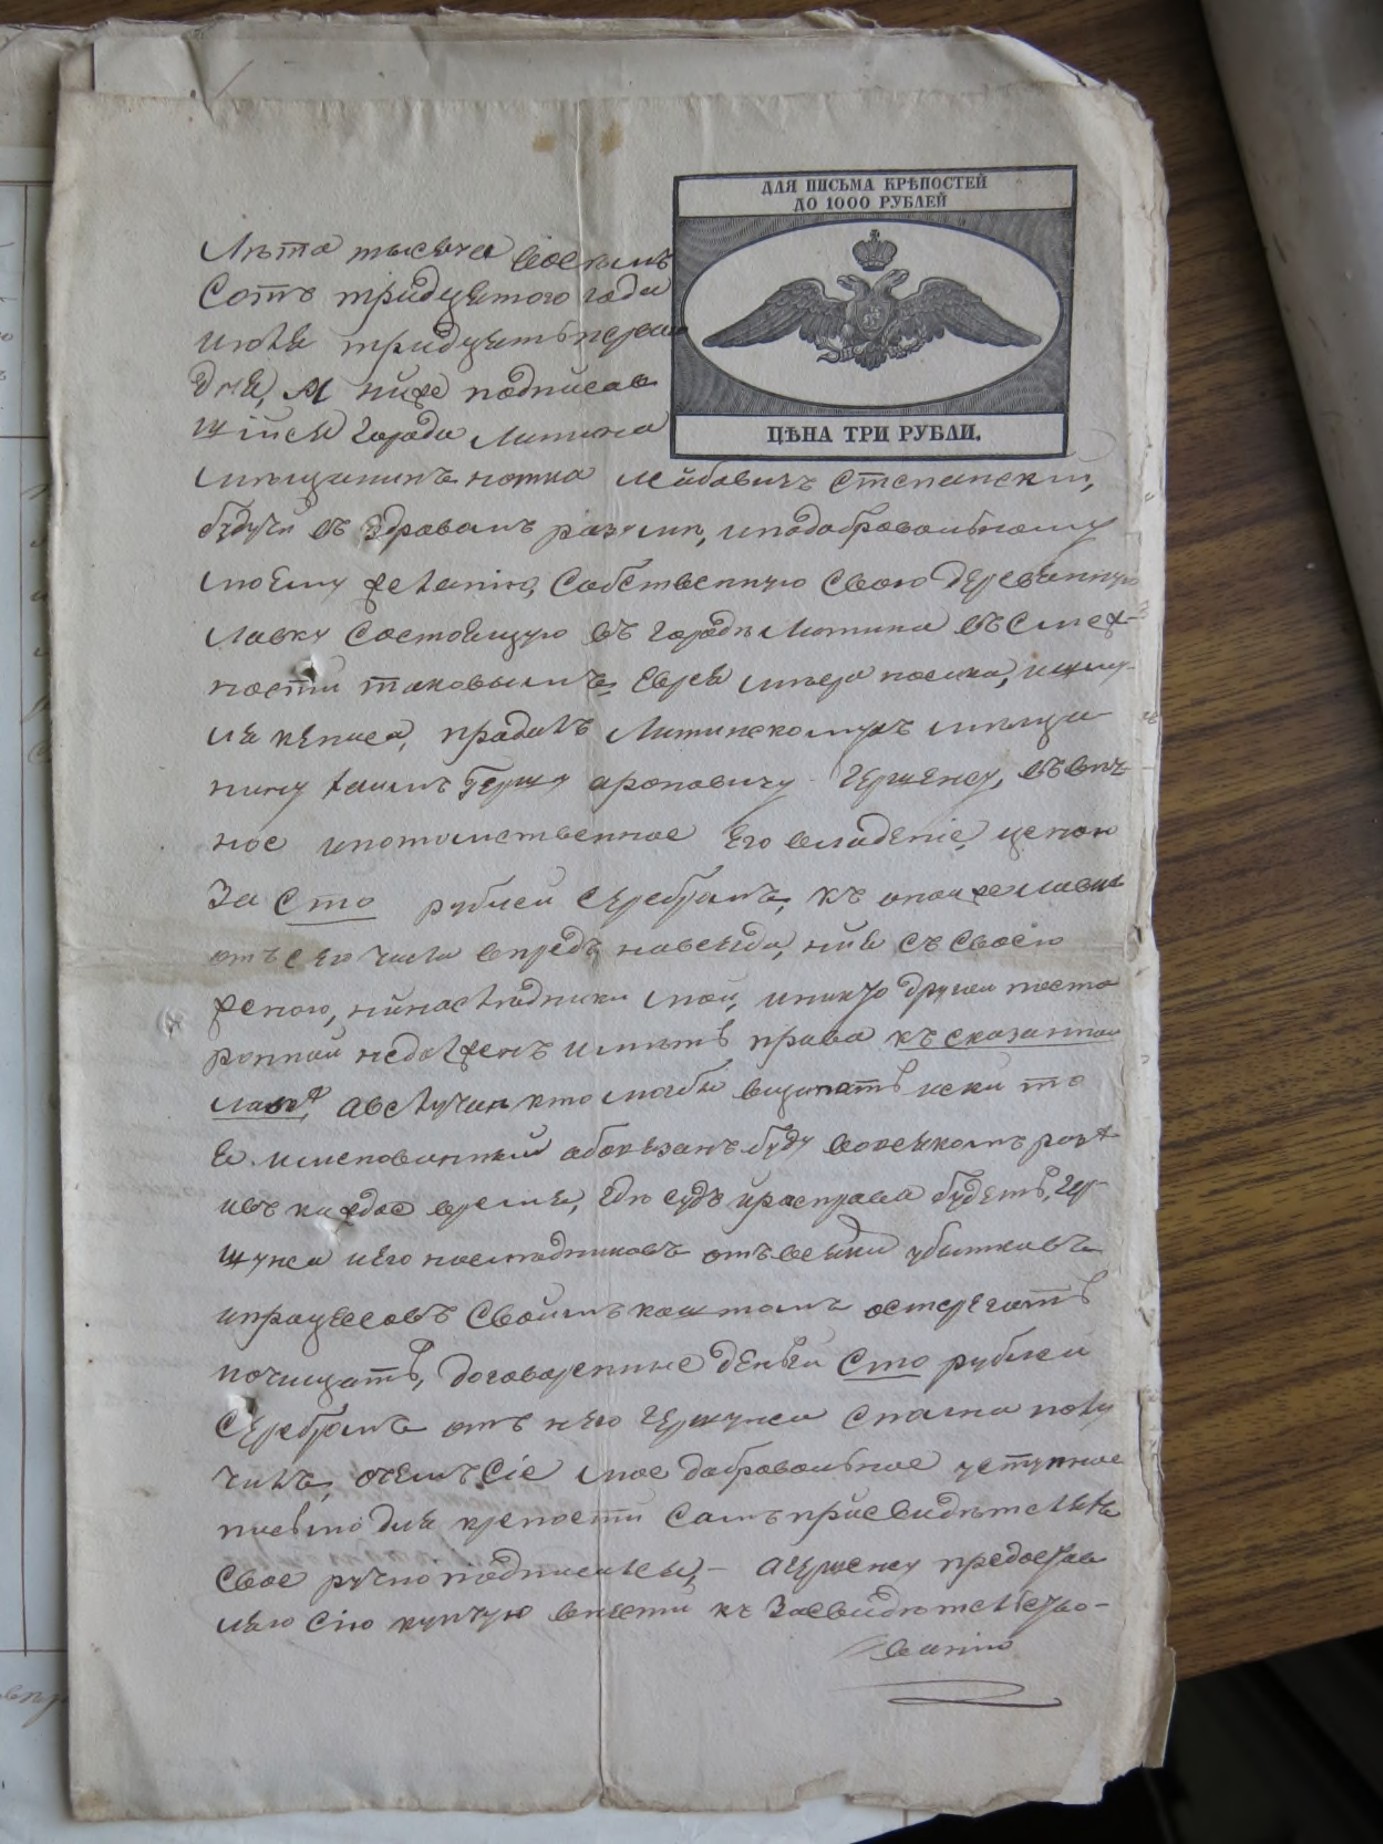 ДЛЯ ПИСЬМА КРѢПОСТЕЙ
ДО 1000 РУБЛЕЙ
ЦѢНА ТРИ РУБЛИ.
Лѣта тысяча восемъ
Сотъ тридцятого года
июля тридцять первого
дня, Я ниже подписав
шійся Города Литина
мѣщанинъ нотка лейбовичъ Степанский,
будучи въ здравомъ разумѣ, и по добровольному
моему желанию, Собственную Свою деревянную
лавку Состоящую въ городѣ Литина въ Смеж-
ности таковымъ Еврея
продалъ Литинскому мѣща
нину Герш ароновичу въ вѣч
ное и потомственное Его владеніе, ценою
За Сто рубчей Серебромъ, къ оной же лавки
отъ Сего числа впредъ навсегда, ни я съ Своею
женою, ни наследники мои, и никто другой посто
ронной недолженъ имѣть права къ сказанной
лавкѣ, а въ Случаи кто могбы вщинать иски то
я обовязанъ буду во всякомъ
ивъ каждое время, где судъ и росправа будетъ, Гер
шуна и его наследниковъ отъ всяки убытковъ
и процессовъ Своимъ коштомъ остерегать
и очищать, договоренные деньги Сто рублей
Серебромъ отъ него Гершуна Сполна полу
чилъ, очемъ Сіе мое добровольное уступное
письмо для крепости Самъ при свидѣтеляхъ
Свое ручно подписался, – а предостав
ляю Сію купчую внести къ Засвидѣтельство-
ванию